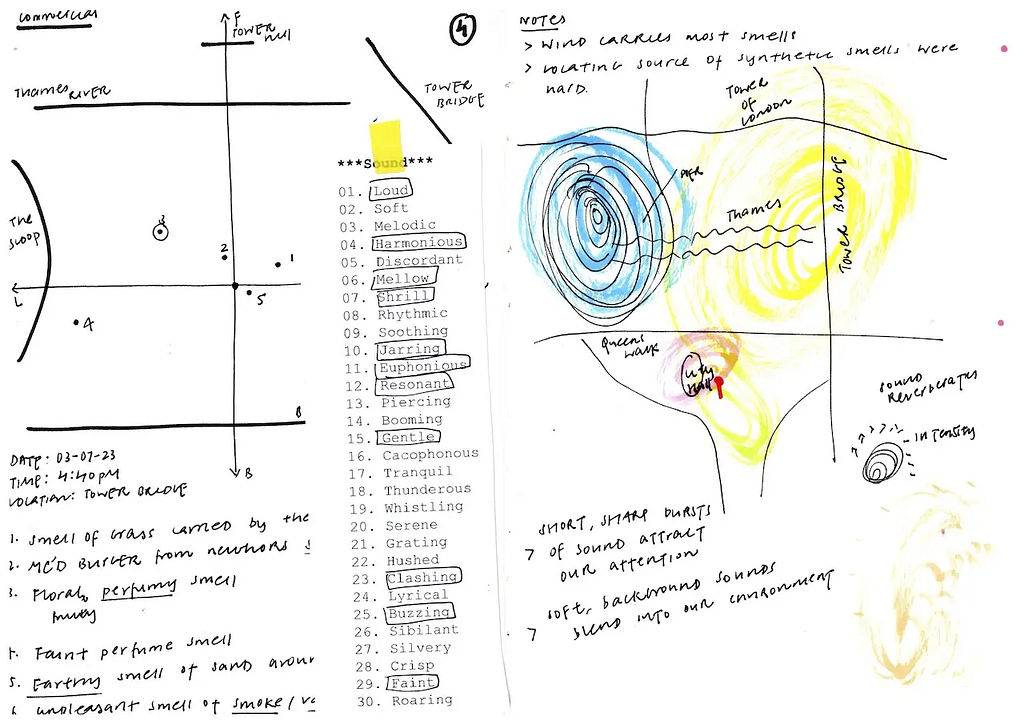 COMMERCIAL
F
TOWER
HILL
4
THAMES RIVER
TOWER
BRIDGE
THE
SCOOP
3
2
1
L
5
4
B
B
DATE: 03-07-23
TIME: 4:40PM
LOCATION: TOWER BRIDGE
1. Smell of grass carried by the
2. MC'D BURGER from
3. Floral, perfumy smell
4. Faint perfume smell
5. Earthy smell of sand
6. unpleasant smell of smoke/
***Sound***
01. Loud
02. Soft
03. Melodic
04. Harmonious
05. Discordant
06. Mellow
07. Shrill
08. Rhythmic
09. Soothing
10. Jarring
11. Euphonious
12. Resonant
13. Piercing
14. Booming
15. Gentle
16. Cacophonous
17. Tranquil
18. Thunderous
19. Whistling
20. Serene
21. Grating
22. Hushed
23. Clashing
24. Lyrical
25. Buzzing
26. Sibilant
27. Silvery
28. Crisp
29. Faint
30. Roaring
NOTES
> WIND CARRIES most smells
> Locating source of synthetic smells were
hard.
TOWER
OF
LONDON
PIER
Thames
TOWER BRIDGE
Queens
walk
City
Hall
SOUND
REVERBERATES
INTENSITY
SHORT, SHARP BURSTS
> OF SOUND ATTRACT
OUR ATTENTION
SOFT, BACKGROUND SOUNDS
> BLEND INTO OUR ENVIRONMENT